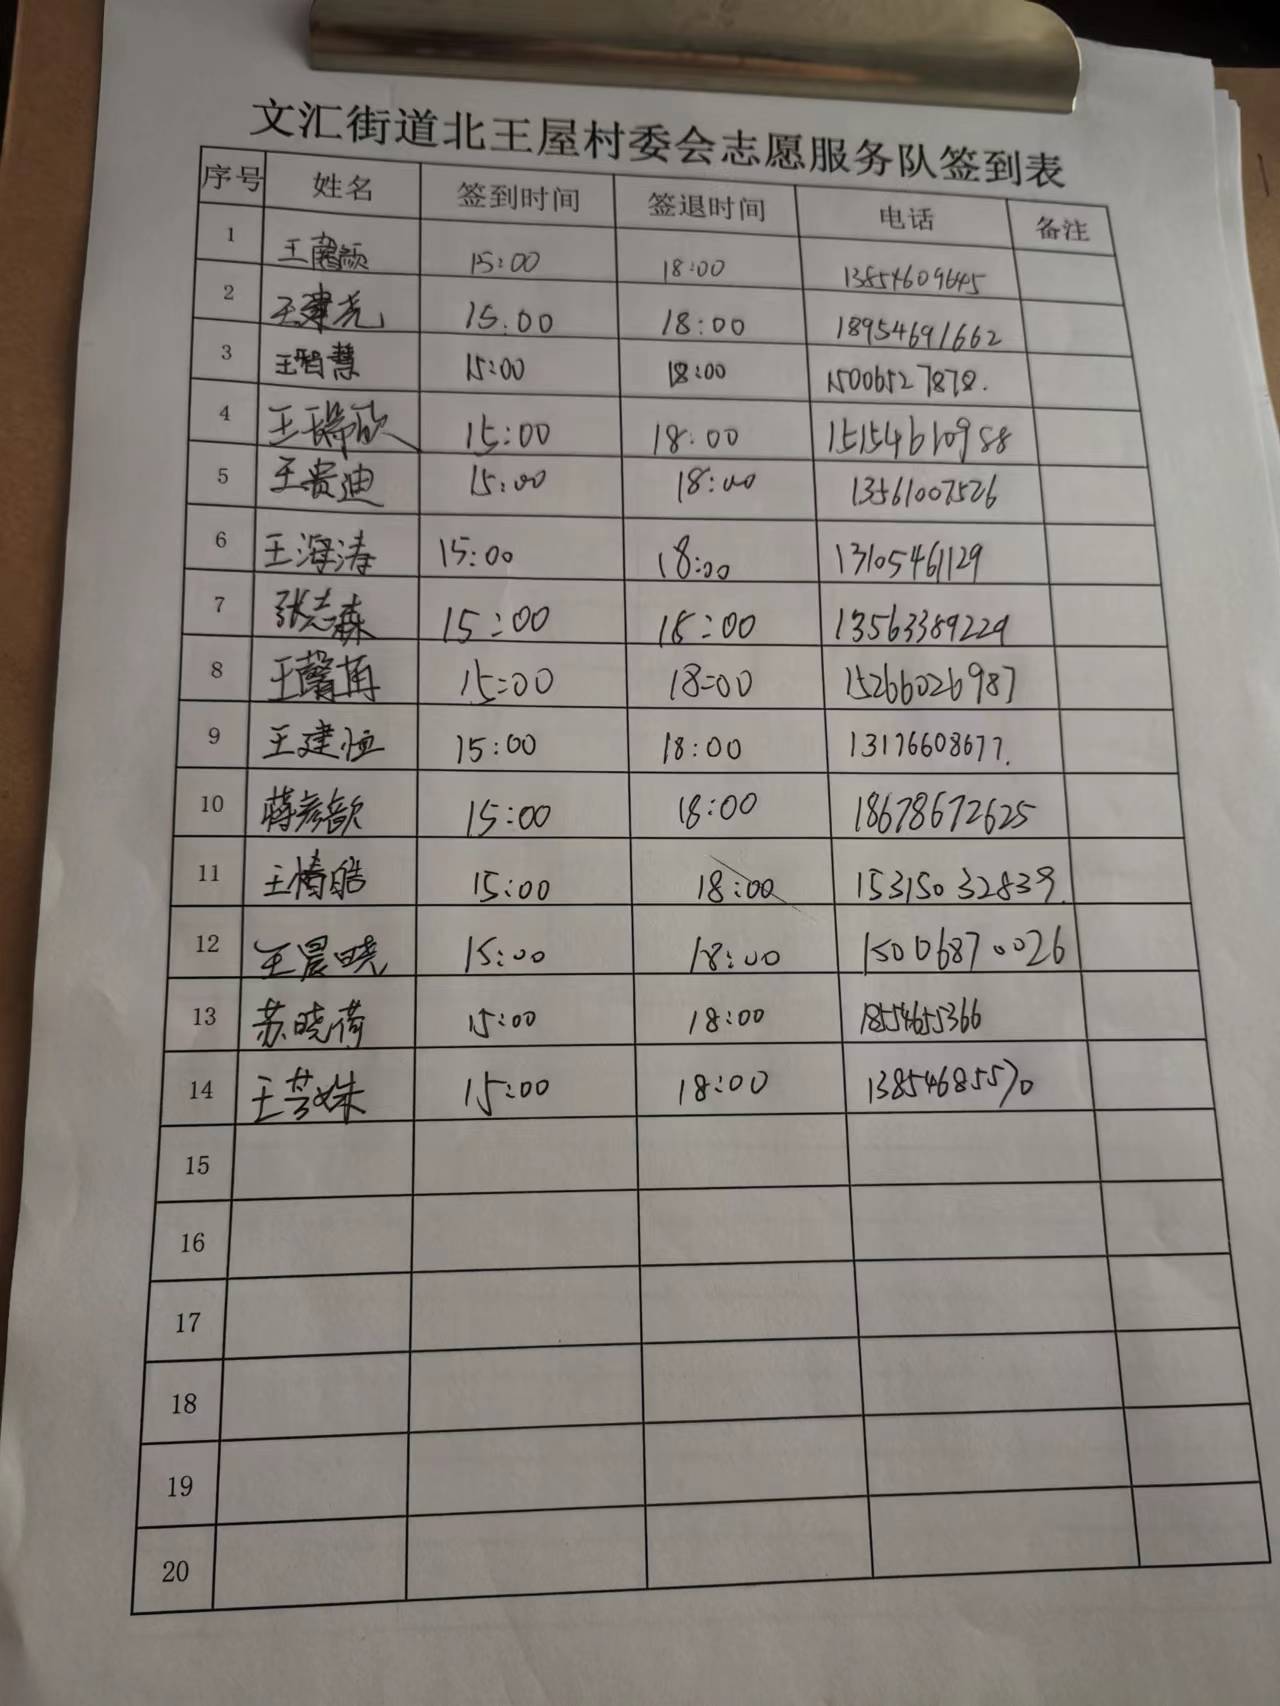 文汇街道北王屋村委会志愿服务队签到表
序号 姓名 签到时间 签退时间 电话 备注
1 王馨颜 15:00 18:00 13854609645
2 王建尧 15:00 18:00 18954691662
3 王智慧 15:00 18:00 15006527878.
4 王瑞欣 15:00 18:00 15154610988
5 王贵迪 15:00 18:00 13561007526
6 王海涛 15:00 18:00 13105461129
7 张志森 15:00 18:00 13563389229
8 王馨苒 15:00 18:00 15266026987
9 王建恒 15:00 18:00 13176608677.
10 蒋彦歆 15:00 18:00 18678672625
11 王皓 15:00 18:00 15315032839.
12 王晨晓 15:00 18:00 15006870026
13 苏晓荷 15:00 18:00 1854655366
14 王姝 15:00 18:00 13854685570
15
16
17
18
19
20